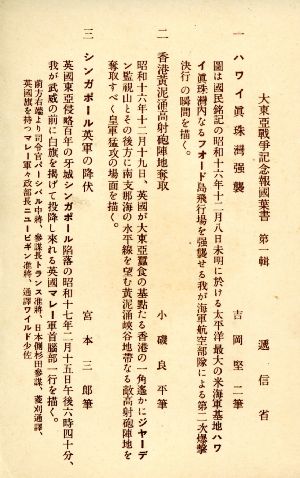 大東亞戰爭記念報國葉書　第一輯　遞信省
一　ハワイ眞珠灣強襲　吉岡堅二筆
圖は國民銘記の昭和十六年十二月八日未明に於ける太平洋最大の米海軍基地ハワ
イ眞珠灣內なるフオード島飛行場を強襲せる我が海軍航空部隊による第二次爆擊
決行の瞬間を描く。
二　香港黃泥涌高射砲陣地奪取　小磯良平筆
昭和十六年十二月十九日、英國が大東亞蠶食の基點たる香港の一角遙かにジヤーデ
ン監視山とその後方に南支那海の水平線を望む黃泥涌峽谷地帶なる敵高射砲陣地を
奪取すべく皇軍猛攻の場面を描く。
三　シンガポール英軍の降伏　宮本三郎筆
英國東亞侵略百年の牙城シンガポール陷落の昭和十七年二月十五日午後六時四十分、
我が武威の前に白旗を揭げて投降し來れる英國マレー軍首腦部一行を描く。
前方右端より司令官パーシバル中將、參謀長トランス准將、日本側杉田參謀、菱刈通譯、
英國旗を持つマレー軍々政部長ニユービギン准將、通譯ワイルド少佐